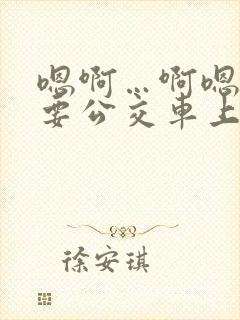 嗯啊…啊嗯
要公交车上
徐安琪